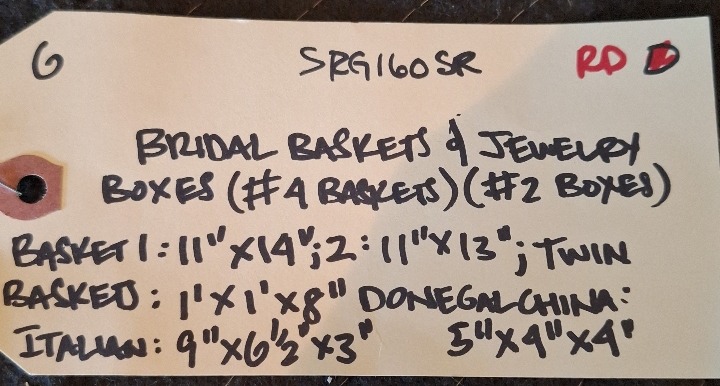 G SRG160SR RD D
BRIDAL BASKETS & JEWELRY
BOXES (#4 BASKETS) (#2 BOXES)
BASKET 1: 11"X14"; 2: 11"X13"; TWIN
BASKETS: 1'X1'X8" DONEGAL CHINA:
ITALIAN: 9"X6½"X3" 5"X4"X4"